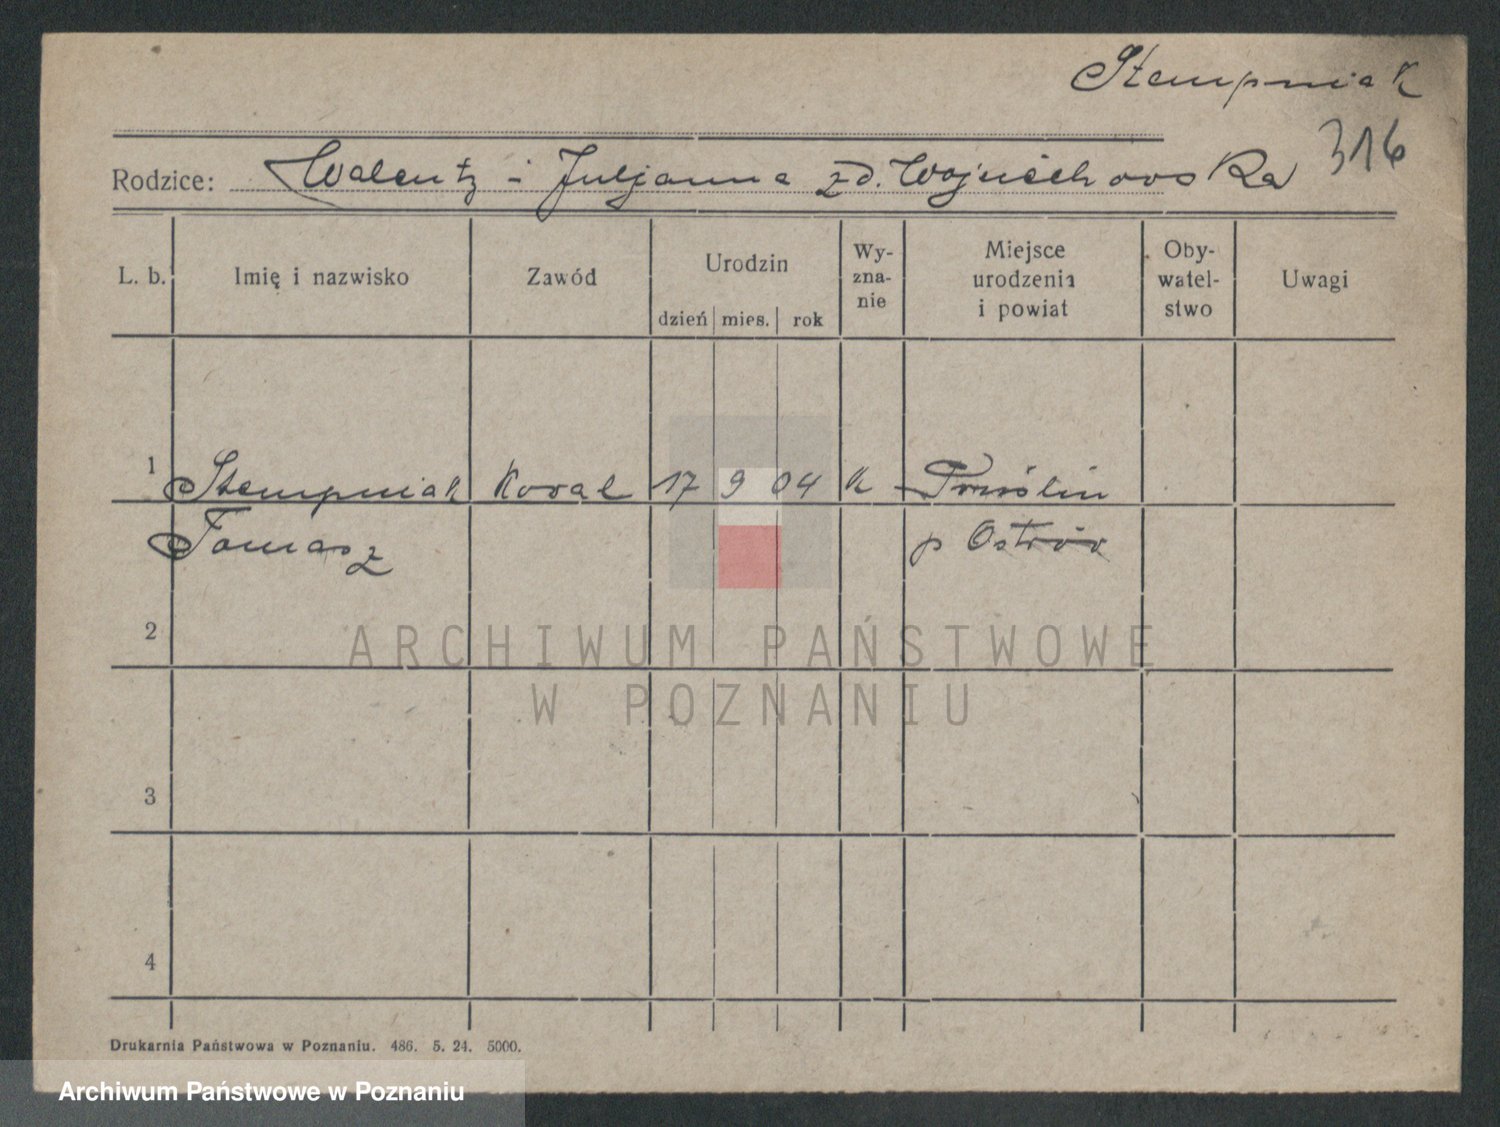 Stempniak
316
Rodzice: Walenty i Juljanna zd. Wojciechowska
L. b. Imię i nazwisko Zawód Urodzin dzień mies. rok Wy-zna-nie Miejsce urodzenia i powiat Oby-watel-stwo Uwagi
1 Stempniak Kowal 17 9 04 K
Tomasz p Ostrów
2
ARCHIWUM PAŃSTWOWE
W POZNANIU
3
4
Drukarnia Państwowa w Poznaniu. 486. 5. 24. 5000.
Archiwum Państwowe w Poznaniu